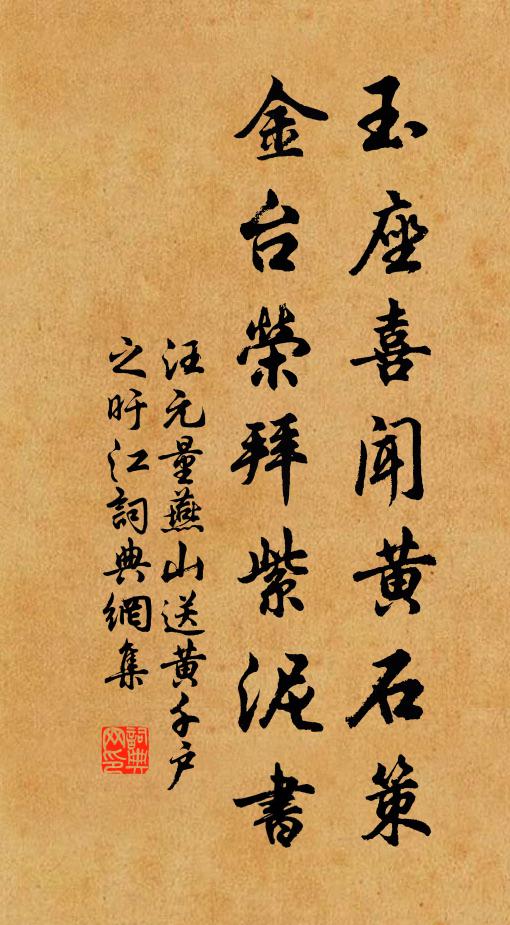 玉座喜闻黄石策
金台榮拜紫泥書
汪元量燕山送黄千户
之旴江詞典網集
詞典网印